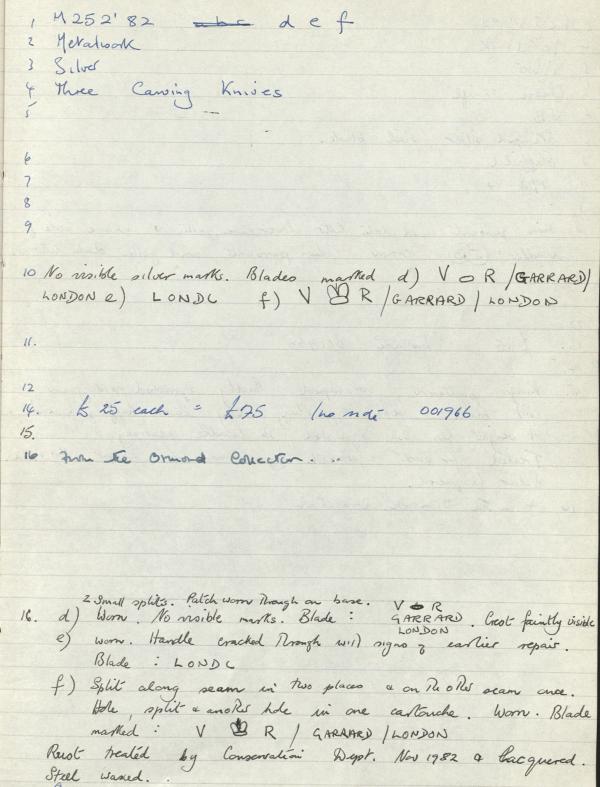 1 M252'82 abc d e f
2 Metalwork
3 Silver
4 Three Carving Knives
5
6
7
8
9
10 No visible silver marks. Blades marked d) V R / GARRARD/
LONDON e) LONDC f) V R / GARRARD / LONDON
11.
12
14. £25 each = £75 001966
15.
16 From the Ormond Collection. ..
2 Small splits. Patch worn through on base. V R
16. d) Worn. No visible marks. Blade : GARRARD. Crest faintly visible
LONDON
e) worn. Handle cracked through with signs of earlier repair.
Blade : LONDC
f) Split along seam in two places & on the other seam once.
Hole, split & another hole in one cartouche. Worn. Blade
marked : V R / GARRARD / LONDON
Rust treated by Conservation Dept. Nov 1982 & lacquered.
Steel waxed.